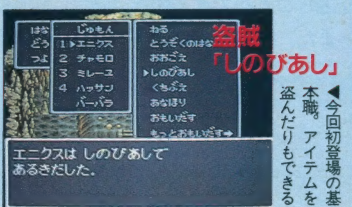 はな
どう
つよ
じゅもん
1▶エニクス
2 チャモロ
3 ミレーユ
4 ハッサン
バーバラ
ねる
とうぞくのはな
おおごえ
▶しのびあし
くちぶえ
あなほり
おもいだす
もっとおもいだす→
エニクスは しのびあしで
あるきだした。
盗賊
「しのびあし」
◀今回初登場の基
本職。アイテムを
盗んだりもできる